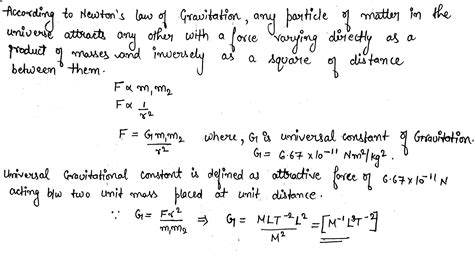 According to Newton's law of Gravitation, any particle of matter in the
universe attracts any other with a force varying directly as a
product of masses and inversely as a square of distance
between them.
F ∝ m₁m₂
F ∝ 1/r²
F = Gm₁m₂/r² where, G is universal constant of Gravitation.
G = 6.67 x 10⁻¹¹ Nm²/kg².
Universal Gravitational constant is defined as attractive force of 6.67x10⁻¹¹ N
acting b/w two unit mass placed at unit distance.
∵ G = Fr²/m₁m₂ ⇒ G = MLT⁻²L²/M² = [M⁻¹L³T⁻²]